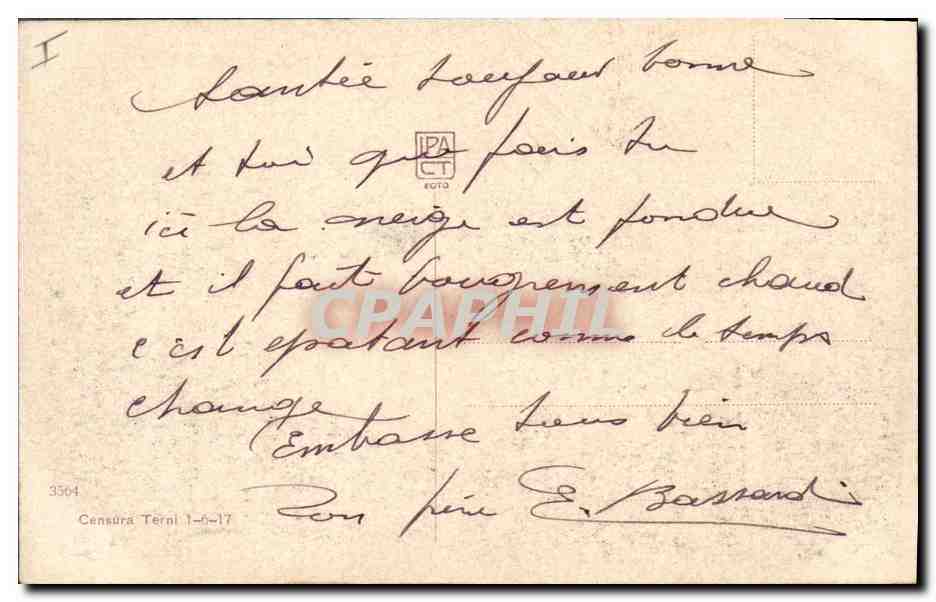 I
Santée toujour bonne
IPA
CT
FOTO
et toi que fais tu
ici la neige est fondue
et il fait bougrement chaud
CPAPHIL
c'est epatant comme le temps
change
Embrasse tous bien
3564
Censura Terni 1-6-17
Ton père E. Bassardi